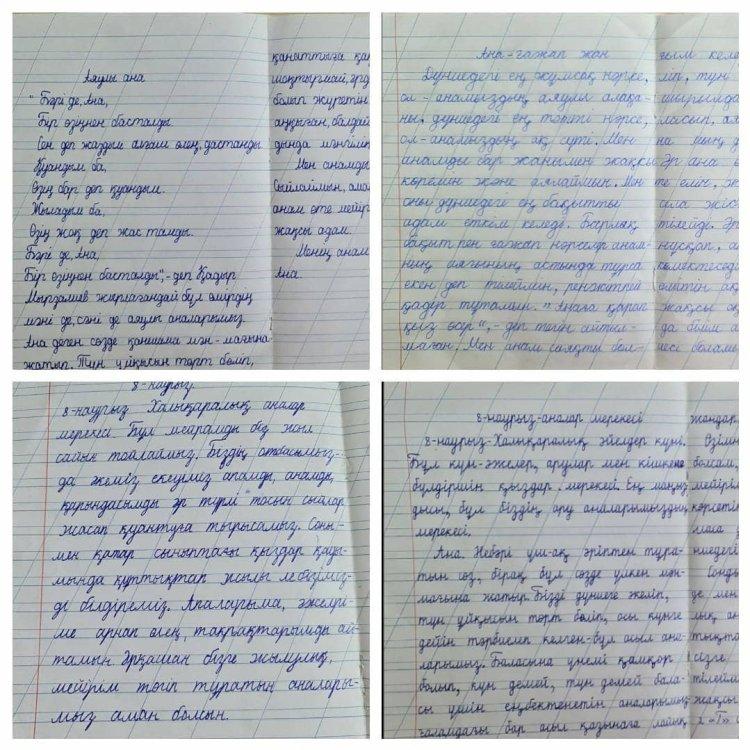 Аяулы ана
" Бәрі де, Ана,
Бір өзіңнен басталды.
Сен деп жаздым алғаш өлең, дастанды.
Қуандым ба,
Өзің бар деп қуандым.
Жыладым ба,
Өзің жоқ деп жас тамды.
Бәрі де, Ана,
Бір өзіңнен басталды",- деп Қадыр
Мырзалиев жырлағандай бұл өмірдің
мәні де, сәні де аяулы аналарымыз.
Ана деген сөзде қаншама мән-мағына
жатыр. Түн ұйқысын төрт бөліп,
қанаттыға қақ
шоқтырмай, әрд
болып жүретін
аңқыған, балдай
дында мәңгілік
Мен анамды
сыйлаймын, ама
анам өте мейір
жақсы адам.
Менің анам
Ана.
Ана-ғажап жан
Дүниедегі ең жұмсақ нәрсе,
ол - анамыздың аяулы алақа-
ны. Дүниедегі ең тәтті нәрсе,
ол-анамыздың ақ сүті. Мен
анамды бар жанымен жақсы
көремін және аялаймын. Мен
оны дүниедегі ең бақытты
адам еткім келеді. Барлық
бақыт пен ғажап нәрселер анам-
ның аяғының астында тұра
екен деп тілеймін, ренжітпей
қадір тұтамын. " Анаға қарап
қыз өсер",- деп тегін айтыл-
маған. Мен анам сияқты бол-
ғым келе
ліп, түн
шырылда
ласып, ая
на мың д
Әр ана ө
те елін, ж
сала жіс
тілейді. Әр
нұсқап, а
келектеседі
болатын ақ
жақсы ақ
да ойым а
несі болам
8-наурыз.
8-наурыз Халықаралық аналар
мерекесі. Бұл мейрамды біз жыл
сайын тойлаймыз. Біздің отбасымыз-
да әкеміз екеуіміз апамды, анамды,
қарындасымды әр түрлі тосын сыйлар
жасап қуантуға тырысамыз. Соны-
мен қатар сыныптағы қыздар қауы-
мында құттықтап жылы лебізіміз-
ді білдіреміз. Апаларыма, әжелрі-
ме арнап өлең, тақпақтарымды ай-
тамын. Әрқашан бізге жылулық,
мейірім төгіп тұратын аналары-
мыз аман болсын.
8-наурыз-аналар мерекесі
8-наурыз-Халықаралық әйелдер күні.
Бұл күн-әжелер, арулар мен кішкене
бүлдіршін қыздар мерекесі. Ең маңыз-
дысы, бұл біздің ару аналарымыздың
мерекесі.
Ана. Небәрі үш-ақ әріптен тұра-
тын сөз, бірақ бұл сөзде үлкен мән-
мағына жатыр. Бізді дүниеге әкеліп,
түн ұйқысын төрт бөліп, осы күнге
дейін тәрбиелеп келген-бұл асыл ана-
ларымыз. Баласына үнемі қамқор
болып, күн демей, түн демей бала-
сы үшін еңбектенетін аналарымыз
ғаламдағы бар асыл қазынаға лайық
жандар.
Өзім
болсам,
мейірім
көрсетін
маға
ниедегі
Сонды
де, мен
лық ан
тықта
сізге
тілейм
жақсы